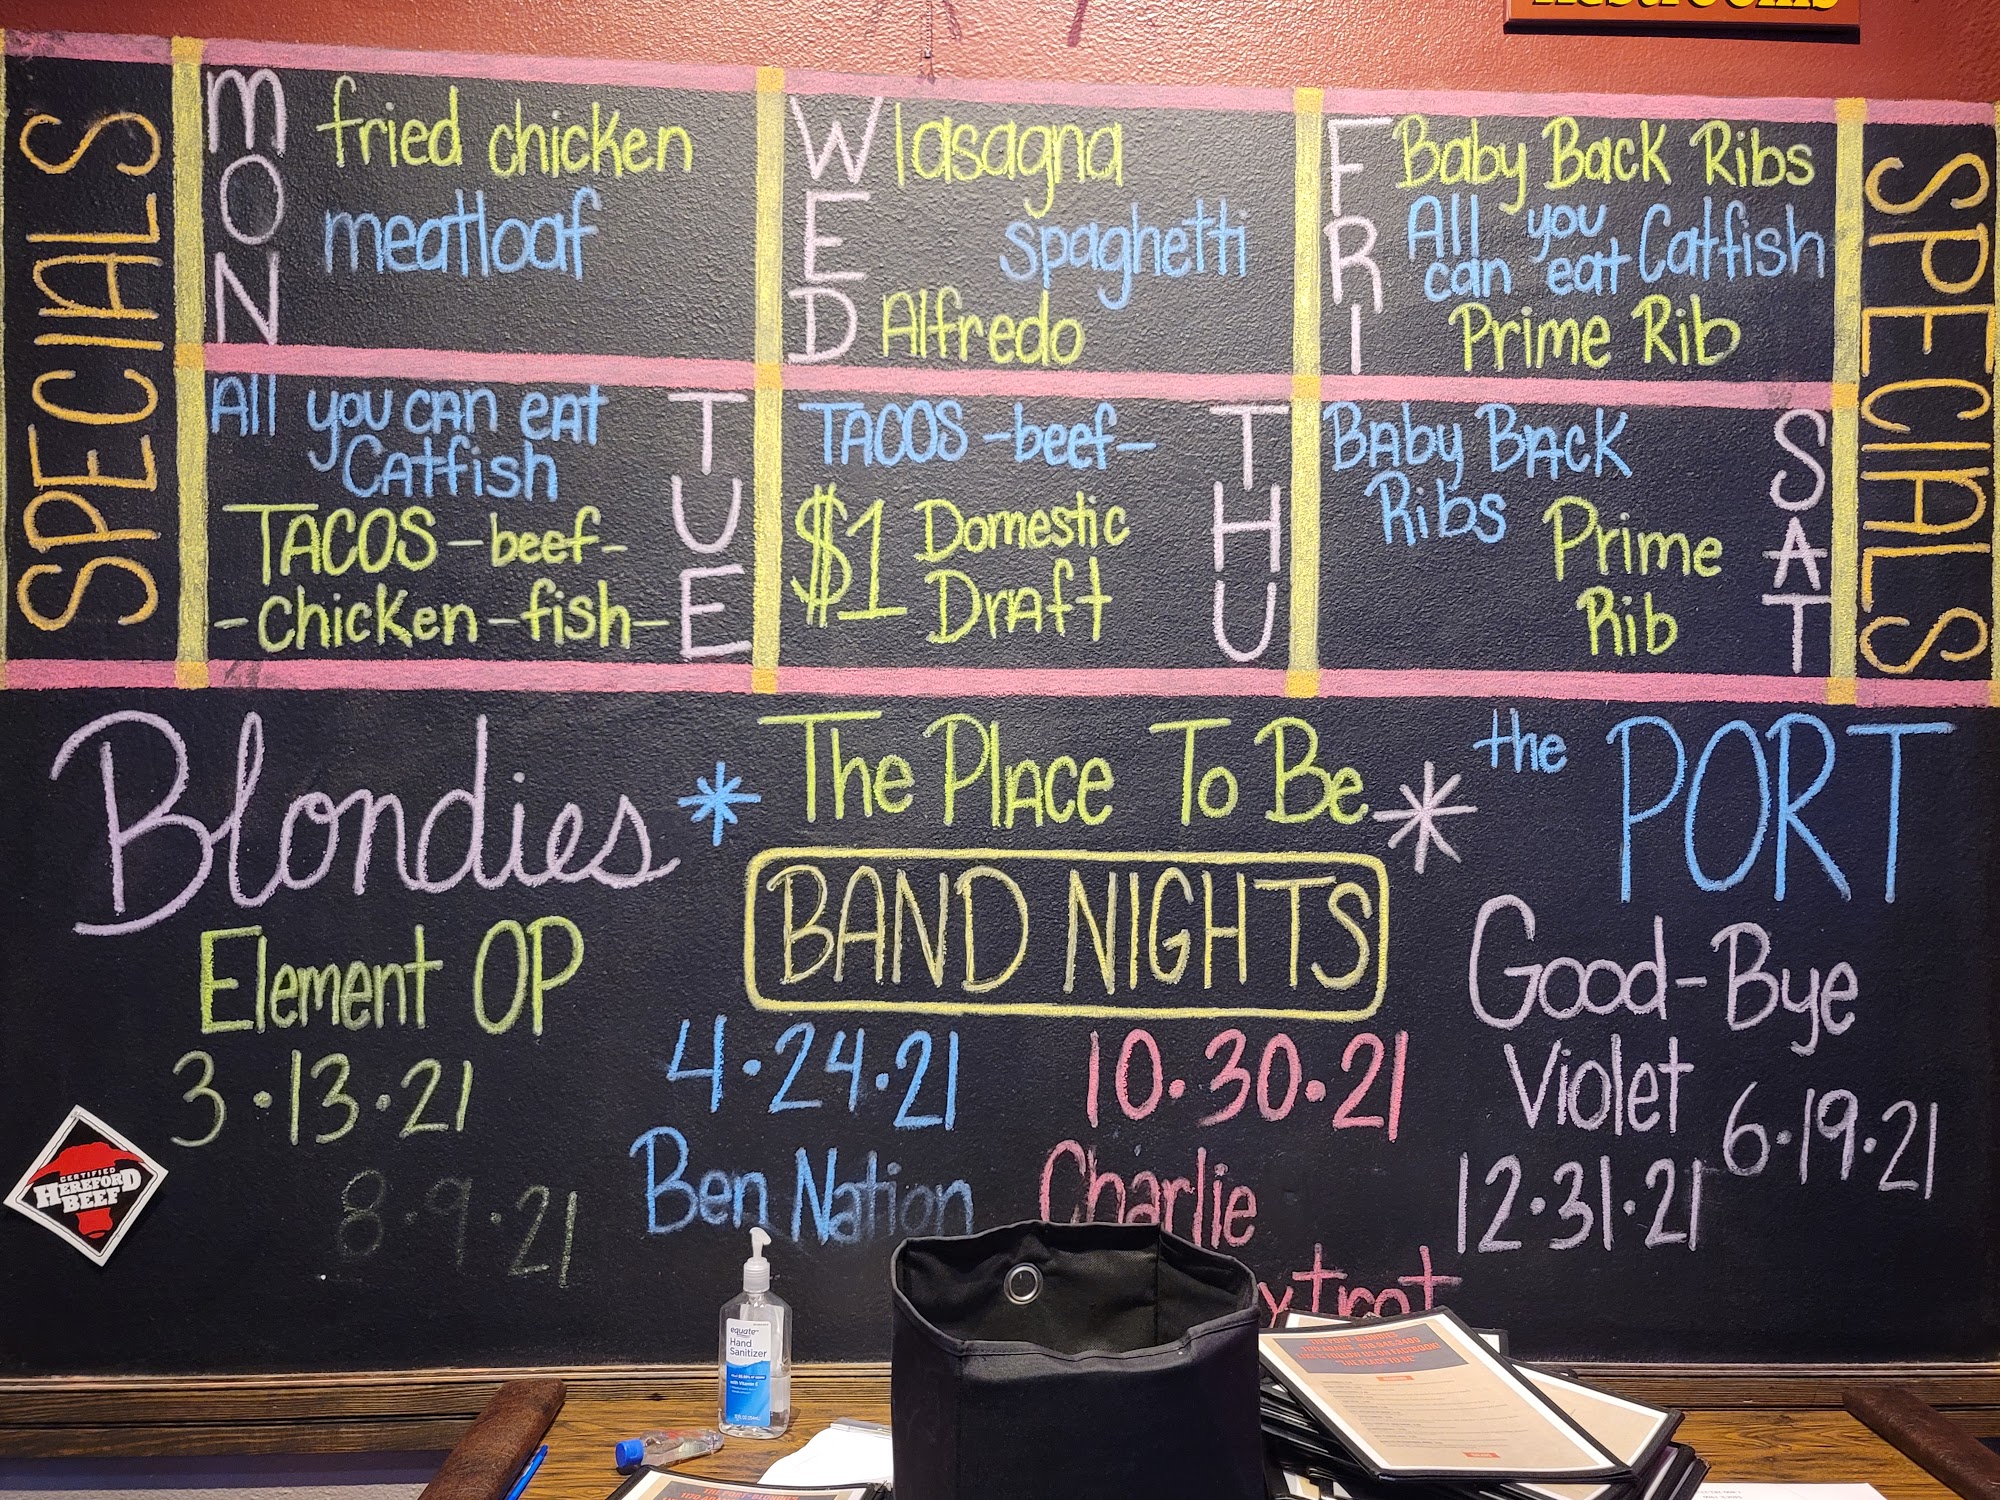 SPECIALS
MON
fried chicken
meatloaf
WED
lasagna
spaghetti
Alfredo
FRI
Baby Back Ribs
All you
can eat Catfish
Prime Rib
SPECIALS
All you can eat
Catfish
TACOS - beef -
- chicken - fish -
TUE
TACOS - beef -
$1 Domestic
Draft
THU
Baby Back
Ribs
Prime
Rib
SAT
Blondies * The Place To Be * the PORT
BAND NIGHTS
Element OP
3·13·21
8·9·21
4·24·21
Ben Nation
10·30·21
Charlie
xtrot
Good-Bye
Violet 6·19·21
12·31·21
CERTIFIED
HEREFORD
BEEF
equate
Hand
Sanitizer
"THE PLACE TO BE"